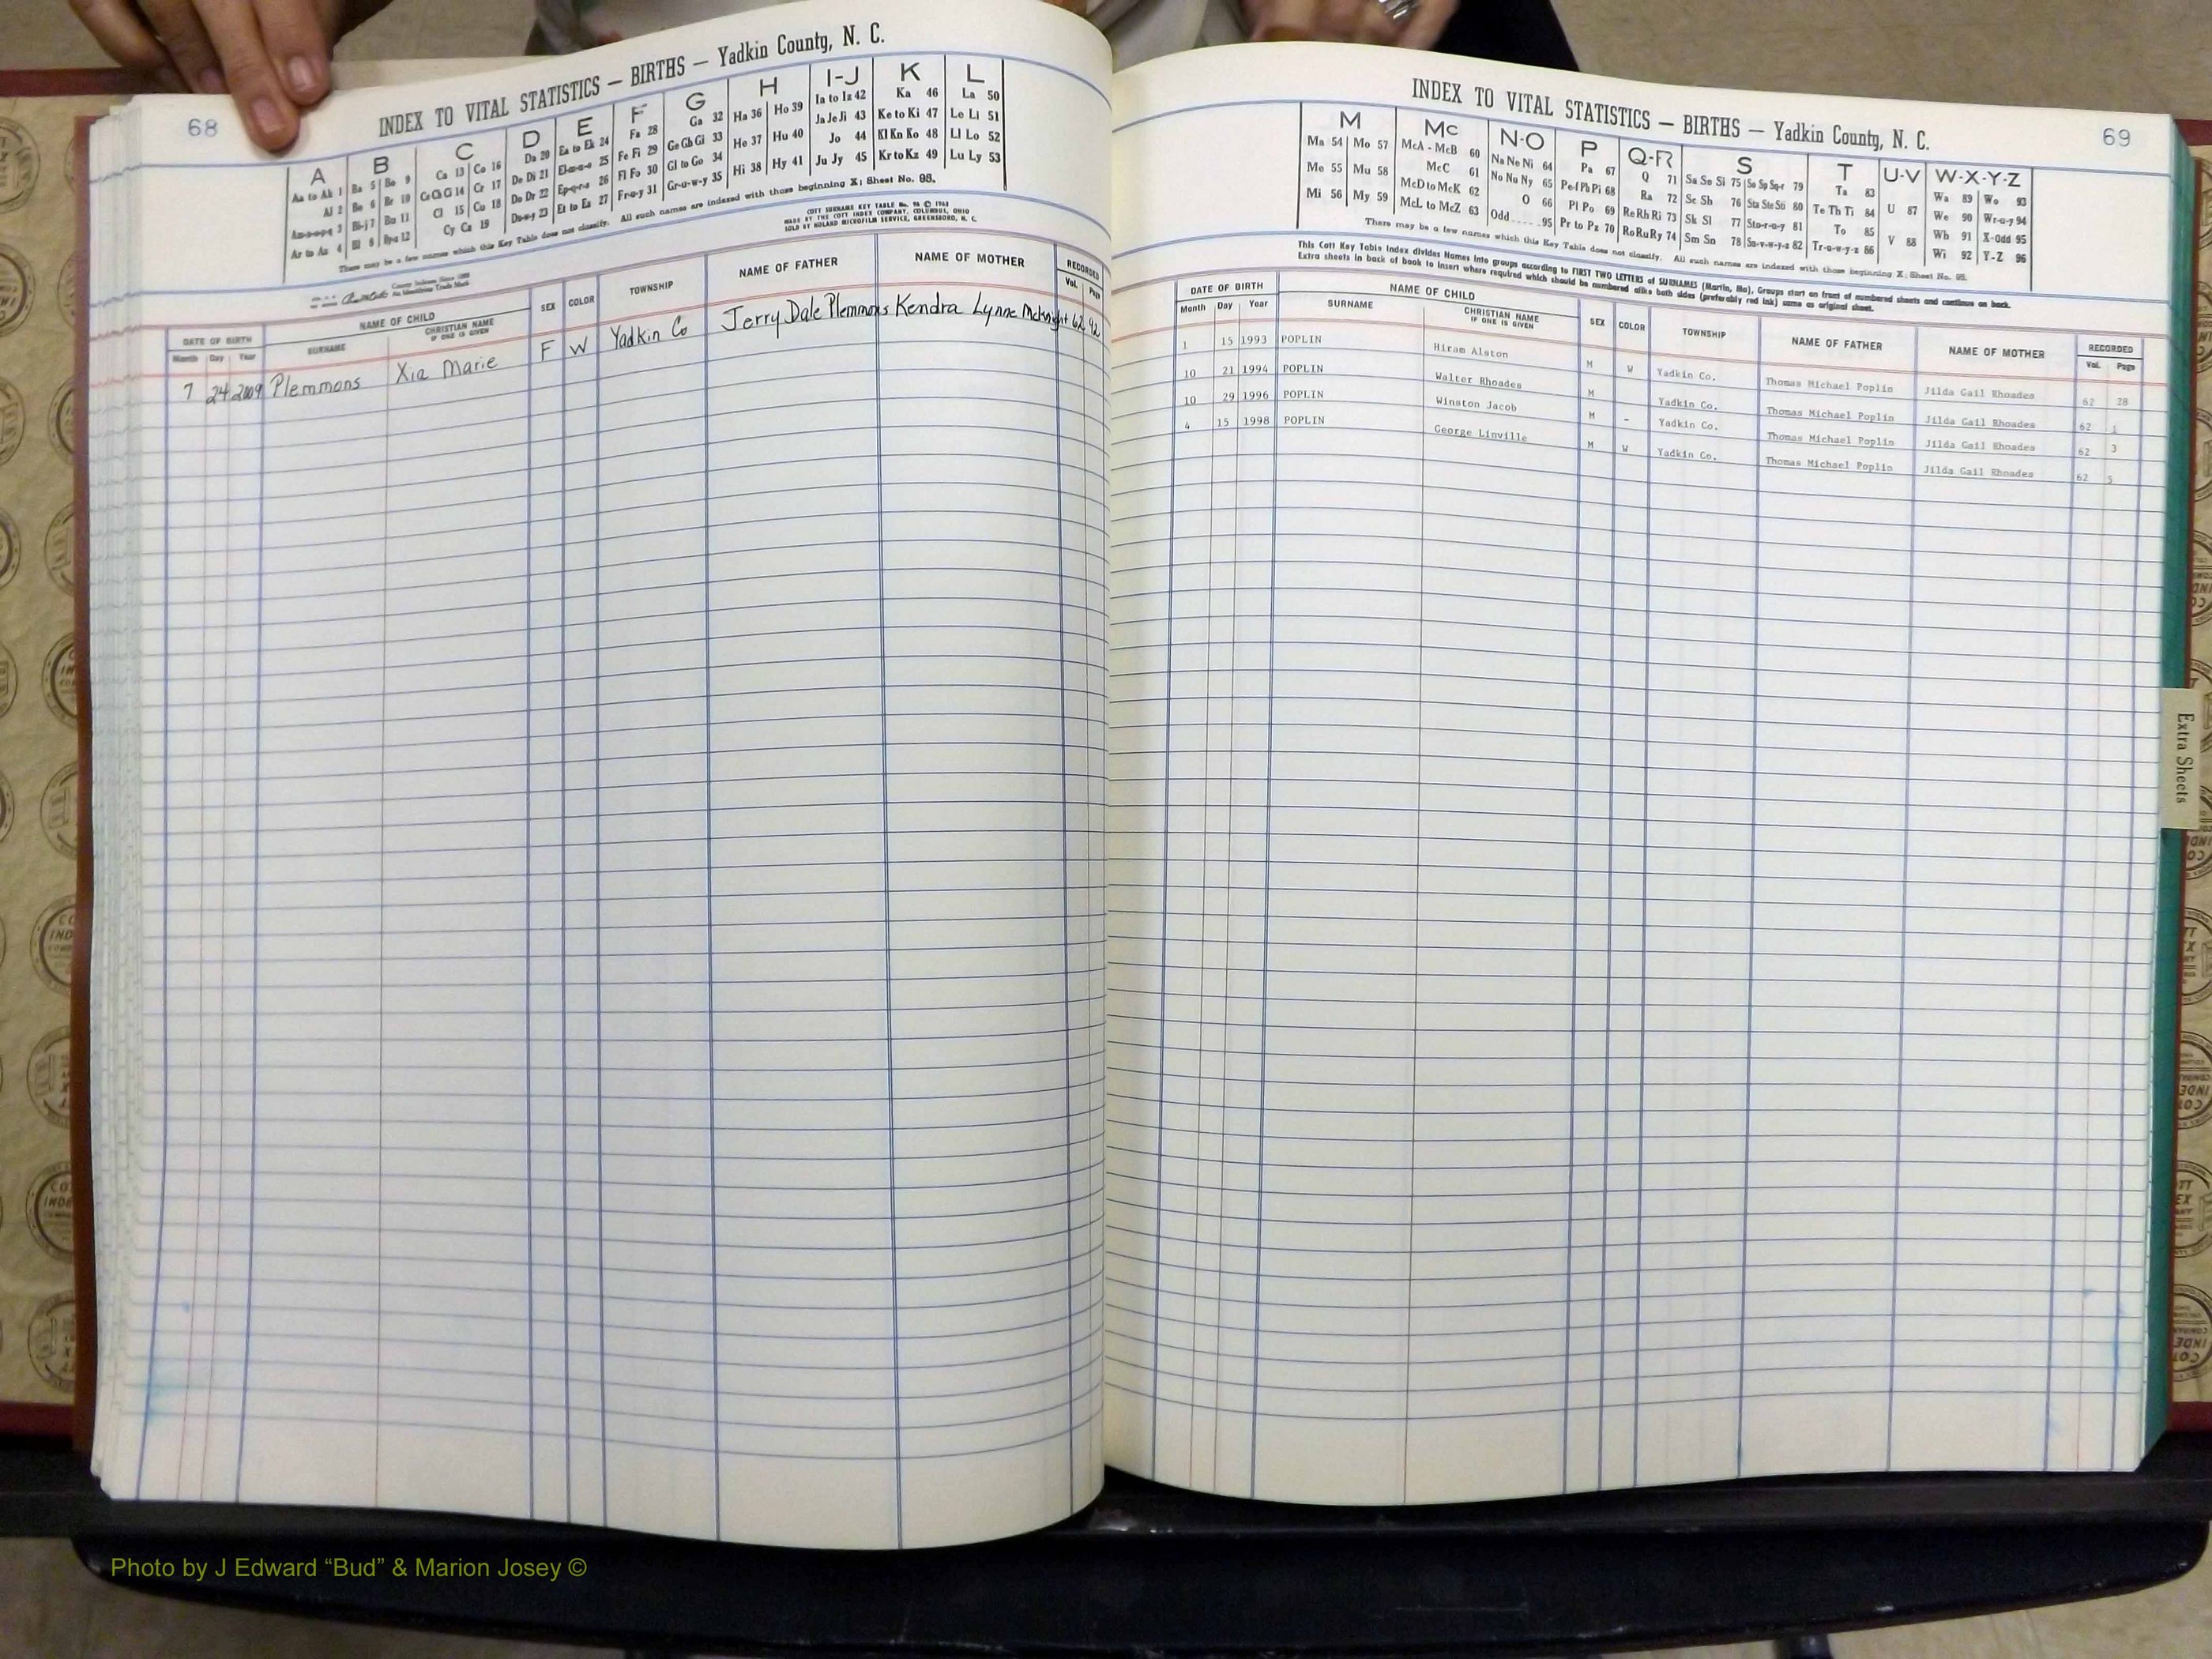 68
INDEX TO VITAL STATISTICS — BIRTHS — Yadkin County, N. C.
A B C D E F G H I-J K L
Aa to Ak 1 Ba 5 Bo 9 Ca 13 Co 16 Da 20 Ea to Ek 24 Fa 28 Ga 32 Ha 36 Ho 39 Ia to Iz 42 Ka 46 La 50
Al 2 Be 6 Br 10 Ce Ch Ci 14 Cr 17 De Di 21 El-m-n-o 25 Fe Fi 29 Ge Gh Gi 33 He 37 Hu 40 Ja Je Ji 43 Ke to Ki 47 Le Li 51
Am-n-o-p-q 3 Bi-j 7 Bu 11 Cl 15 Cu 18 Do Dr 22 Ep-q-r-s 26 Fl Fo 30 Gl to Go 34 Hi 38 Hy 41 Jo 44 Kl Kn Ko 48 Ll Lo 52
Ar to Az 4 Bl 8 By-z 12 Cy Cz 19 Du-w-y 23 Et to Ez 27 Fr-u-y 31 Gr-u-w-y 35 Ju Jy 45 Kr to Kz 49 Lu Ly 53
There may be a few names which this Key Table does not classify. All such names are indexed with those beginning X; Sheet No. 95.
COTT SURNAME KEY TABLE No. 96 © 1963
MADE BY THE COTT INDEX COMPANY, COLUMBUS, OHIO
SOLD BY NOLAND MICROFILM SERVICE, GREENSBORO, N. C.
County Indexes Since 1888
An Identifying Trade Mark
DATE OF BIRTH NAME OF CHILD SEX COLOR TOWNSHIP NAME OF FATHER NAME OF MOTHER RECORDED
Month Day Year SURNAME CHRISTIAN NAME IF ONE IS GIVEN Vol. Page
7 24 2009 Plemmons Xia Marie F W Yadkin Co Jerry Dale Plemmons Kendra Lynne McKnight 62 92
INDEX TO VITAL STATISTICS — BIRTHS — Yadkin County, N. C.
69
M Mc N-O P Q-R S T U-V W-X-Y-Z
Ma 54 Mo 57 McA - McB 60 Na Ne Ni 64 Pa 67 Q 71 Sa Se Si 75 So Sp Sq-r 79 Ta 83 U 87 Wa 89 Wo 93
Me 55 Mu 58 McC 61 No Nu Ny 65 Pe-f Ph Pi 68 Ra 72 Sc Sh 76 Sta Ste Sti 80 Te Th Ti 84 V 88 We 90 Wr-u-y 94
Mi 56 My 59 McD to McK 62 O 66 Pl Po 69 Re Rh Ri 73 Sk Sl 77 Sto-r-u-y 81 To 85 Wh 91 X-Odd 95
McL to McZ 63 Odd 95 Pr to Pz 70 Ro Ru Ry 74 Sm Sn 78 Su-v-w-y-z 82 Tr-u-w-y-z 86 Wi 92 Y-Z 96
There may be a few names which this Key Table does not classify. All such names are indexed with those beginning X; Sheet No. 95.
This Cott Key Table Index divides Names into groups according to FIRST TWO LETTERS of SURNAMES (Martin, Ma), Groups start on front of numbered sheets and continue on back.
Extra sheets in back of book to insert where required which should be numbered alike both sides (preferably red ink) same as original sheet.
DATE OF BIRTH NAME OF CHILD SEX COLOR TOWNSHIP NAME OF FATHER NAME OF MOTHER RECORDED
Month Day Year SURNAME CHRISTIAN NAME IF ONE IS GIVEN Vol. Page
1 15 1993 POPLIN Hiram Alston M W Yadkin Co. Thomas Michael Poplin Jilda Gail Rhoades 62 28
10 21 1994 POPLIN Walter Rhoades M Yadkin Co. Thomas Michael Poplin Jilda Gail Rhoades 62 1
10 29 1996 POPLIN Winston Jacob M - Yadkin Co. Thomas Michael Poplin Jilda Gail Rhoades 62 3
4 15 1998 POPLIN George Linville M W Yadkin Co. Thomas Michael Poplin Jilda Gail Rhoades 62 5
Extra Sheets
Photo by J Edward “Bud” & Marion Josey ©